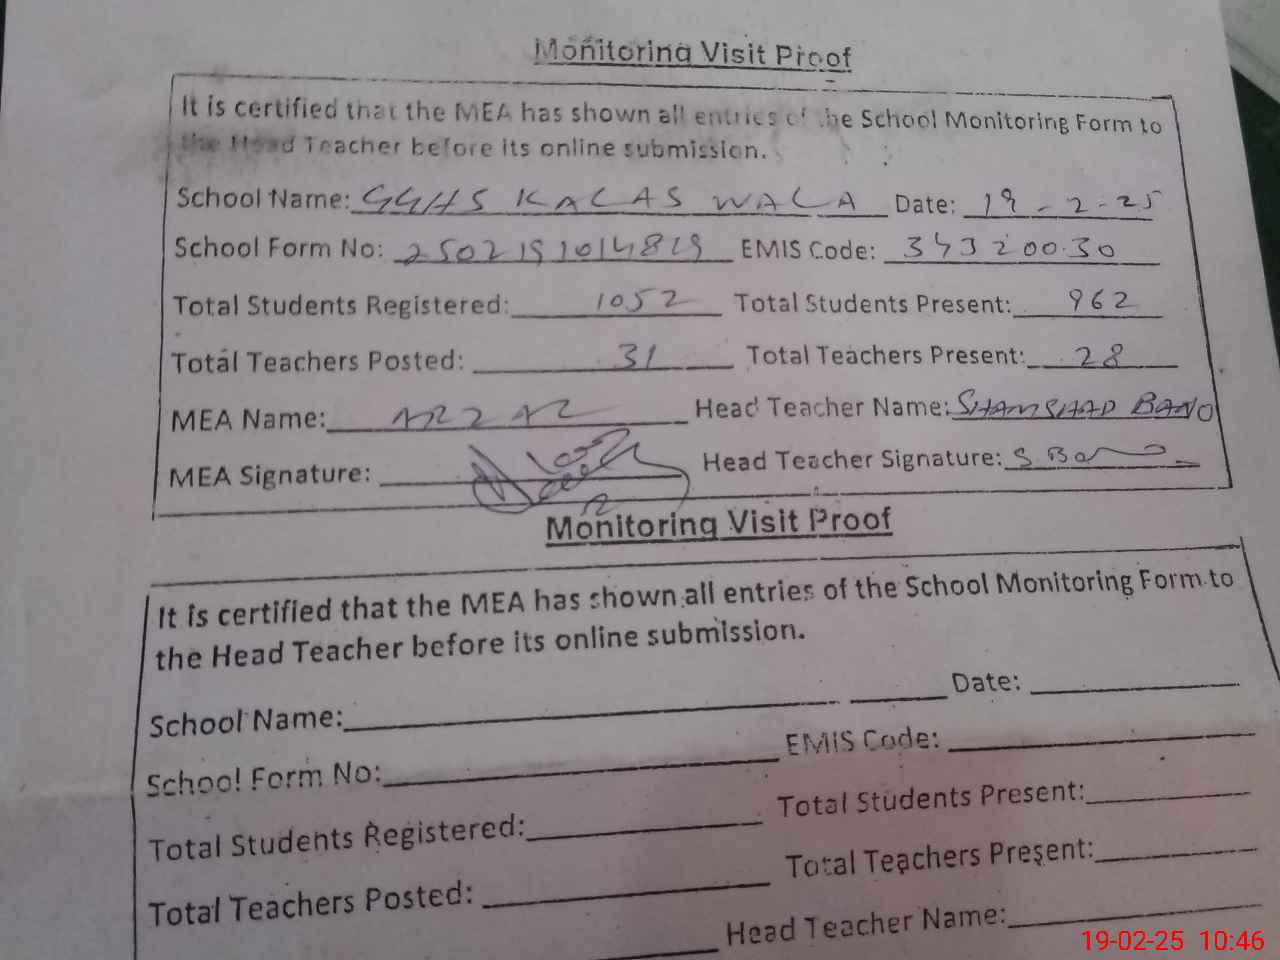 Monitoring Visit Proof
It is certified that the MEA has shown all entries of the School Monitoring Form to
the Head Teacher before its online submission.
School Name: GGHS KALAS WALA Date: 19-2-25
School Form No: 2502191014819 EMIS Code: 34320030
Total Students Registered: 1052 Total Students Present: 962
Total Teachers Posted: 31 Total Teachers Present: 28
MEA Name: Head Teacher Name: SHAMSHAD BANO
MEA Signature: Head Teacher Signature: S Bano
Monitoring Visit Proof
It is certified that the MEA has shown all entries of the School Monitoring Form to
the Head Teacher before its online submission.
School Name: Date:
School Form No: EMIS Code:
Total Students Registered: Total Students Present:
Total Teachers Posted: Total Teachers Present:
Head Teacher Name:
19-02-25 10:46